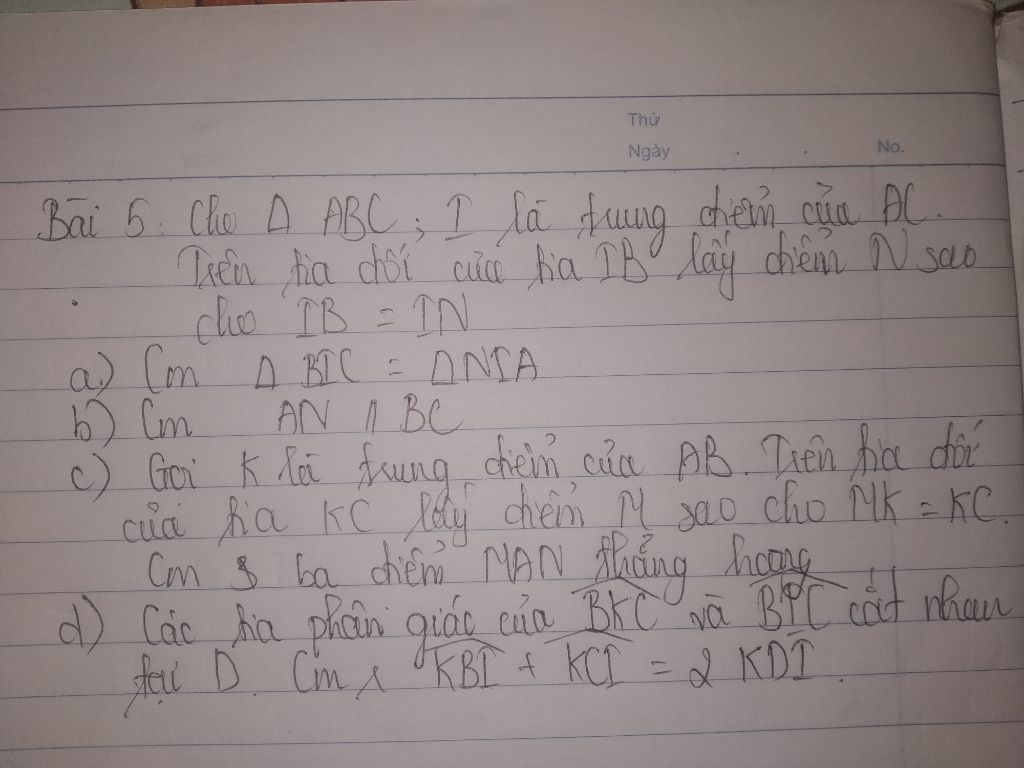 Thứ
Ngày . . No.
Bài 5. Cho Δ ABC; I là trung điểm của AC.
Trên tia đối của tia IB lấy điểm N sao
cho IB = IN
a) Cm Δ BIC = ΔNIA
b) Cm AN // BC
c) Gọi K là trung điểm của AB. Trên tia đối
của tia KC lấy điểm M sao cho MK = KC.
Cm 3 ba điểm MAN thẳng hàng
d) Các tia phân giác của BKC và BIC cắt nhau
tại D. Cm KBI + KCI = 2 KDI.